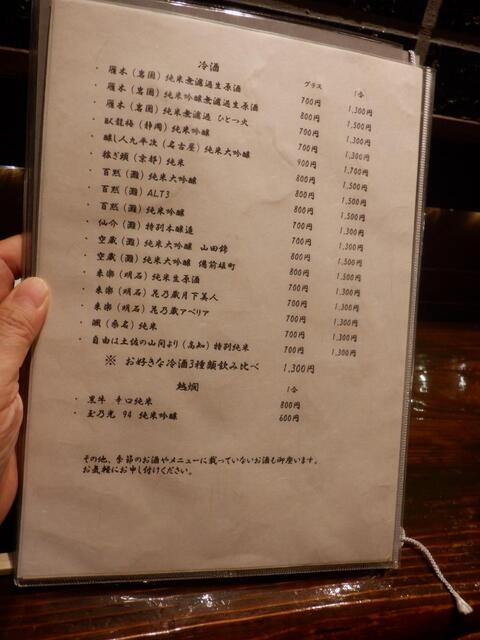 冷酒
グラス 1合
・雁木(岩国)純米無濾過生原酒 700円 1,300円
・雁木(岩国)純米吟醸無濾過生原酒 800円 1,500円
・雁木(岩国)純米無濾過 ひとつ火 700円 1,300円
・臥龍梅(静岡)純米吟醸 700円 1,300円
・醸し人九平次(名古屋)純米大吟醸 900円 1,700円
・稼ぎ頭(京都)純米 800円 1,500円
・百黙(灘)純米大吟醸 800円 1,500円
・百黙(灘)ALT3 800円 1,500円
・百黙(灘)純米吟醸 700円 1,300円
・仙介(灘)特別本醸造 700円 1,300円
・空蔵(灘)純米大吟醸 山田錦 800円 1,500円
・空蔵(灘)純米大吟醸 備前雄町 800円 1,500円
・来楽(明石)純米生原酒 700円 1,300円
・来楽(明石)花乃蔵月下美人 700円 1,300円
・来楽(明石)花乃蔵アベリア 700円 1,300円
・颯(桑名)純米 700円 1,300円
・自由は土佐の山間より(高知)特別純米 700円 1,300円
※ お好きな冷酒3種類飲み比べ 1,300円
熱燗 1合
・黒牛 辛口純米 800円
・玉乃光 94 純米吟醸 600円
その他、季節のお酒やメニューに載っていないお酒も御座います。
お気軽にお申し付けください。